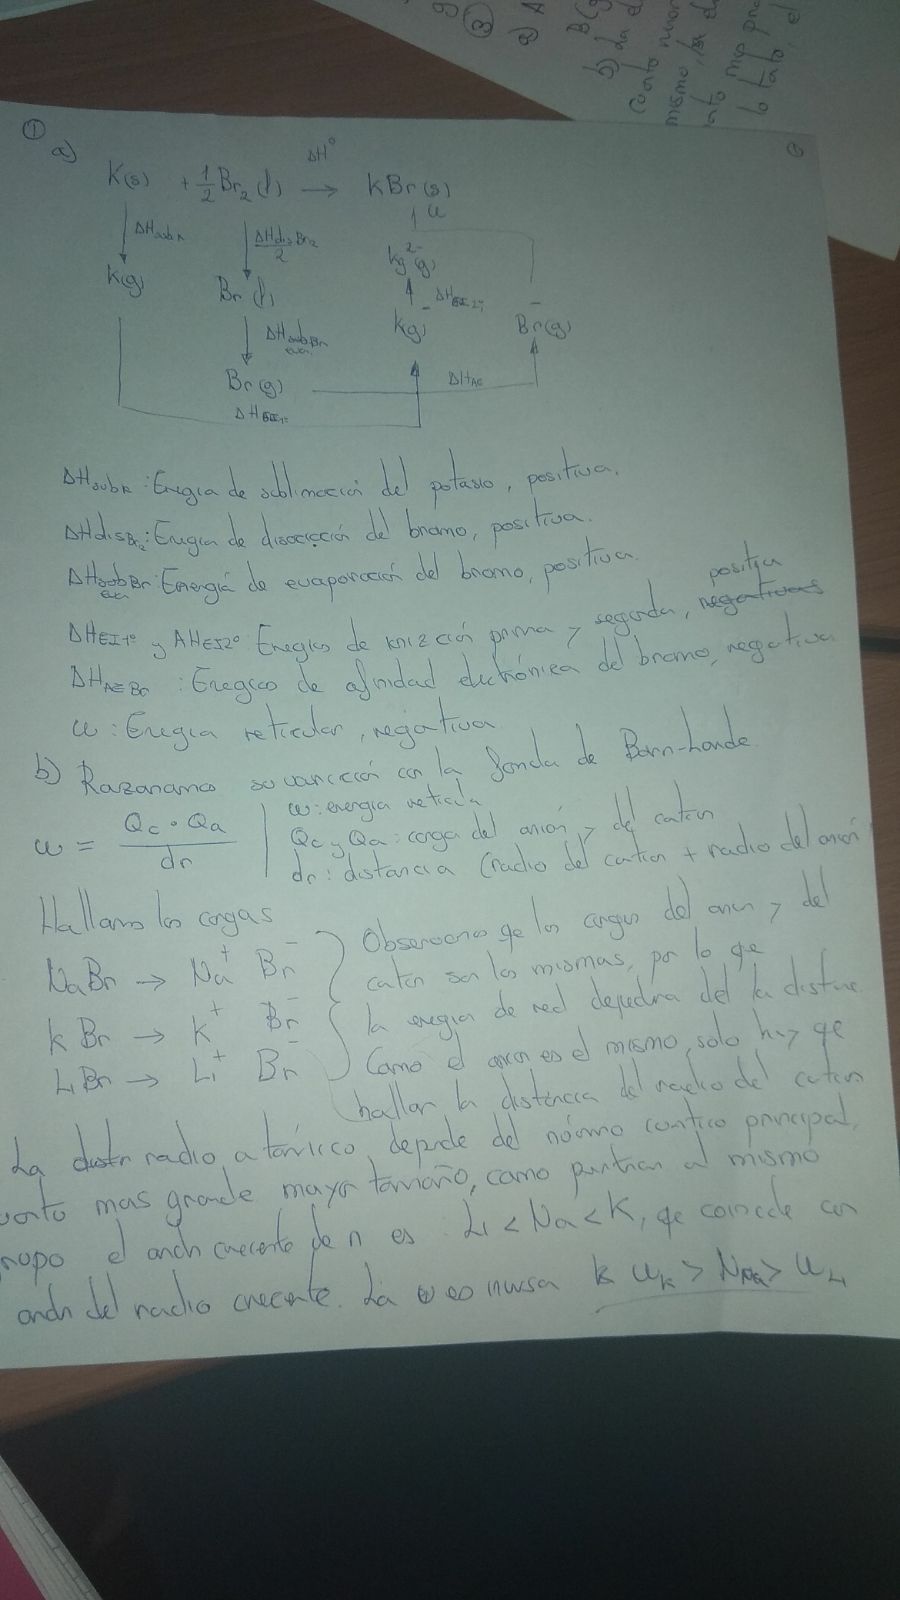 ①
a)
ΔH°
K(s) + 1/2 Br₂(l) → KBr(s)
ΔHsubK ΔHdisBr₂/2 u
K(g) Br(l) Kg²⁻(g)
ΔHsubBr eva ΔHEI2° Kg⁻ Br⁻(g)
Br(g) ΔHAE
ΔHEI1°
ΔHsubK: Energia de sublimación del potasio, positiva.
ΔHdisBr₂: Energia de disociación del bromo, positiva.
ΔHsubBr eva: Energia de evaporación del bromo, positiva.
positiva
ΔHEI1° y ΔHEI2° Energia de ionización primera y segunda, negativas
ΔHAEBr: Energia de afinidad electrónica del bromo, negativa
u: Energia reticular, negativa
b) Razonamo su variación con la fomula de Born-Lande.
u = Qc · Qa / dr
u: energia reticula
Qc y Qa: carga del anión y del cation
dr: distancia (radio del cation + radio del anión
Hallamos las cargas
Observamos qe las cargas del anion y del
NaBr → Na⁺ Br⁻ cation son las mismas, por lo qe
KBr → K⁺ Br⁻ la energia de red dependra del la distancia
LiBr → Li⁺ Br⁻ Como el anion es el mismo, solo hay qe
hallar la distancia del radio del cation
La radio atómico depende del número cuantico principal,
uanto mas grande mayor tamaño, como pertencen al mismo
rupo el orden creciente de n es Li < Na < K, qe coincide con
orden del radio creciente. La u es inversa K uK > uNa > uLi
③
a) A
b) La
lo tato, el